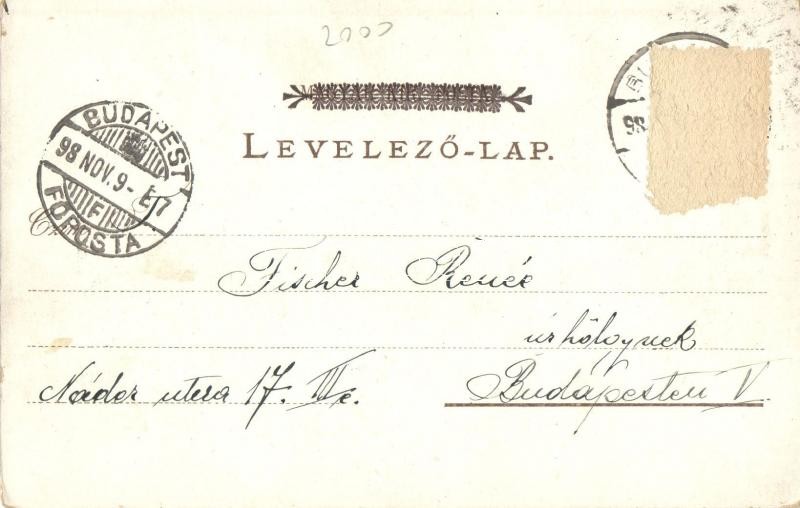 2000
LEVELEZŐ-LAP.
BUDAPEST
98 NOV. 9 - E 7
F
FŐPOSTA
98
Fischer Renée
úrhölgynek
Nádor utcza 17. III e.
Budapesten V